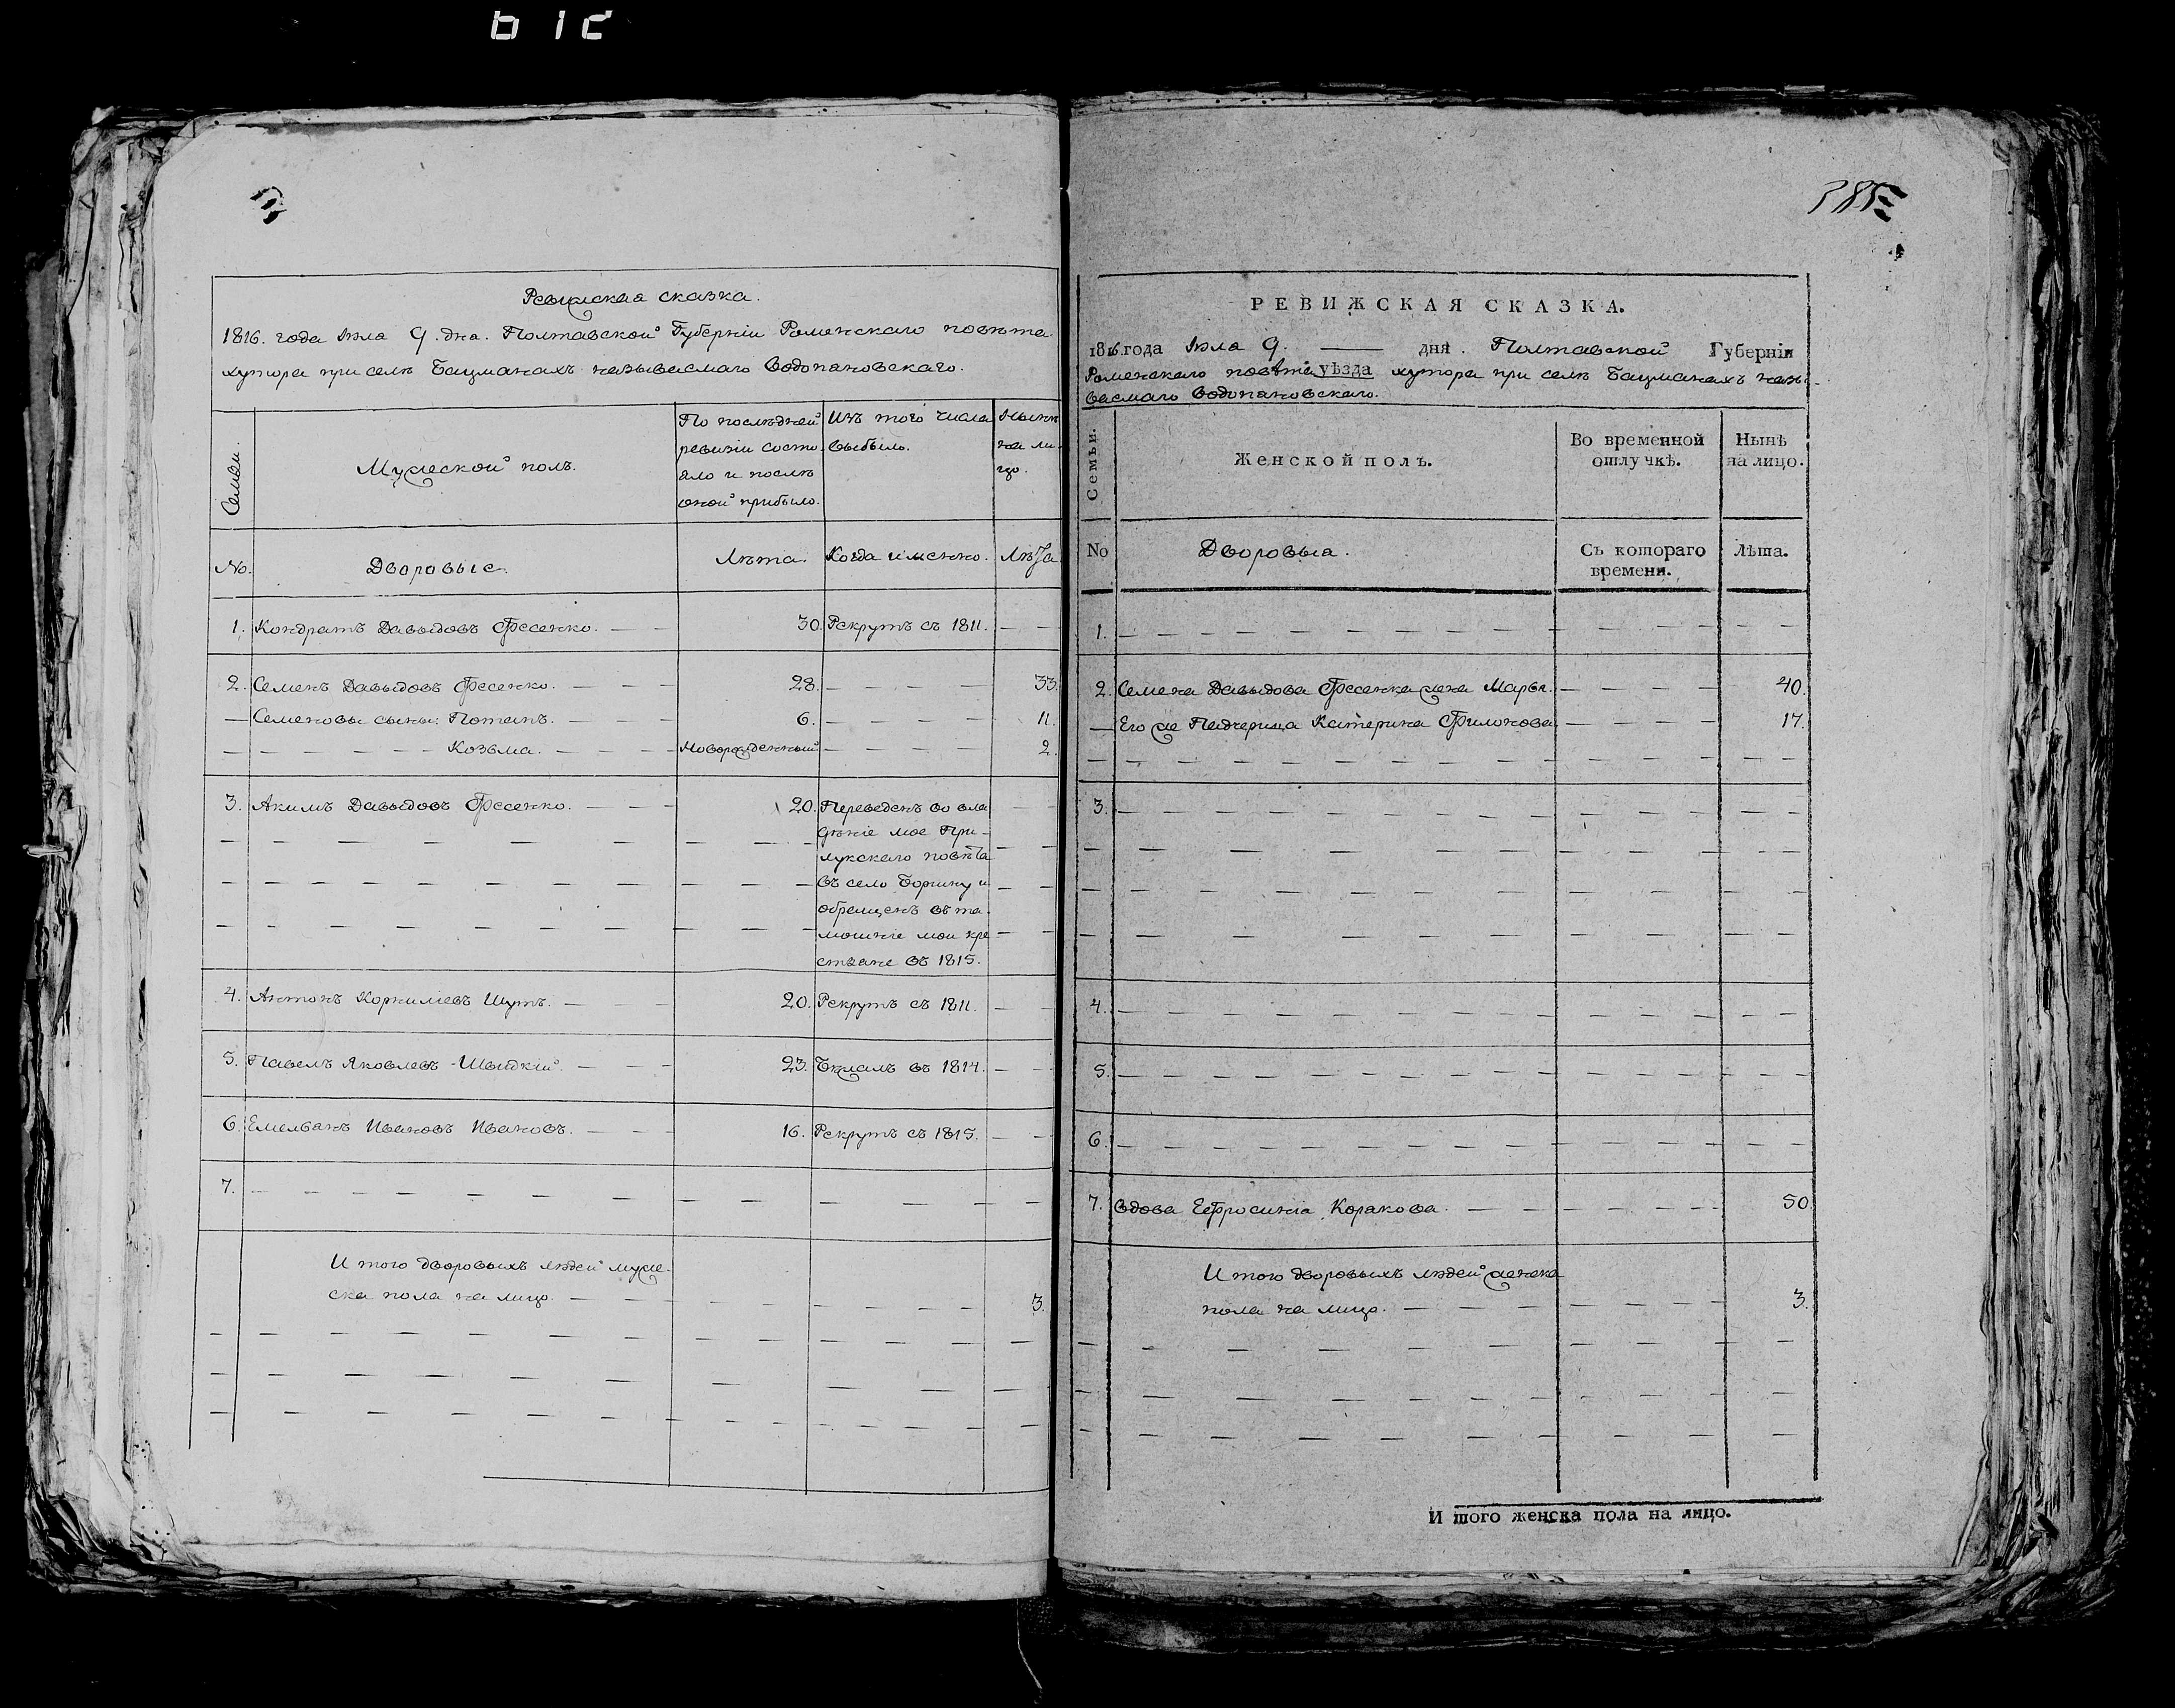 Ревижская сказка.
1816. года Іюла 9. дна. Полтавской Губерніи Роменскаго повѣта
хутора при селѣ Бацманахъ называемаго Водопановскаго.
Семьи.
Мужеской полъ.
По послѣдней
ревизіи состо
яло и послѣ
оной прибыло.
Изъ того числа
выбыло.
Нынѣ
на ли-
цо.
No.
Дворовые.
Лѣта.
Когда именно.
Лѣта
1. Кондратъ Давыдовъ Фесенко. 30. Рекрутъ съ 1811.
2. Семенъ Давыдовъ Фесенко. 28. 33.
Семеновы сыны: Потапъ. 6. 11.
Козьма. Новорожденный 2.
3. Акимъ Давыдовъ Фесенко. 20. Переведенъ во вла
дѣніе мое При-
лукскаго повѣта
въ село Боршну и
обращенъ въ та-
мошніе мои кре
стьяне въ 1815.
4. Антонъ Корниліевъ Шутъ. 20. Рекрутъ съ 1811.
5. Павелъ Яковлевъ Швыдкій. 23. Бѣжалъ въ 1814.
6. Емельянъ Ивановъ Ивановъ. 16. Рекрутъ съ 1815.
7.
И того дворовыхъ людей муже-
ска пола на лицо. 3.
РЕВИЖСКАЯ СКАЗКА.
1816.года Іюла 9. дня. Полтавской Губерніи
Роменскаго повѣта уѣзда хутора при селѣ Бацманахъ назы-
ваемаго Водопановскаго.
Семьи.
Женской полъ.
Во временной
отлучкѣ.
Нынѣ
на лицо.
No
Дворовыа.
Съ котораго
времени.
Лѣта.
1.
2. Семена Давыдова Фесенка жена Марья. 40.
Его же Падчерица Катерина Филонова 17.
3.
4.
5.
6.
7. Вдова Ефросиніа Коракова. 50.
И того дворовыхъ людей женска
пола на лицо. 3.
И того женска пола на лицо.